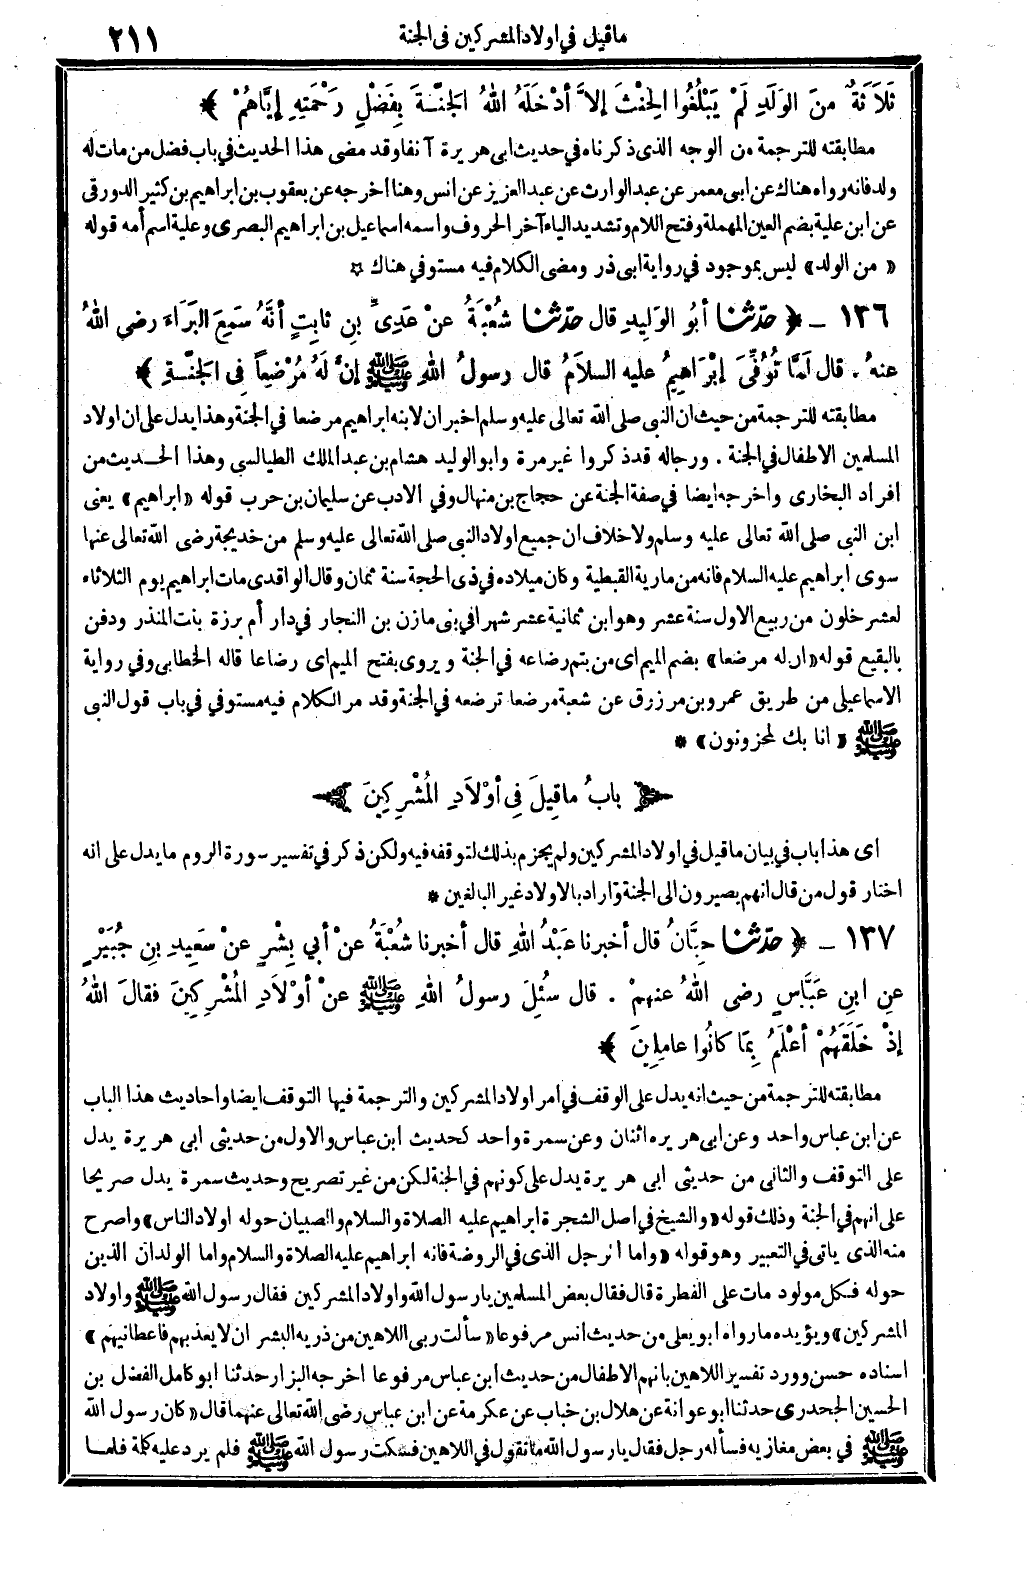 ما قيل في اولاد المشركين في الجنة ٢١١
ثَلاَثَةٌ مِنَ الوَلَدِ لَمْ يَبْلُغُوا الحِنْثَ إلاَّ أدْخَلَهُ اللهُ الجَنَّةَ بِفَضْلِ رَحْمَتِهِ إيَّاهُمْ ﴾
مطابقته للترجمة من الوجه الذى ذكرناه في حديث ابى هريرة آنفا وقد مضى هذا الحديث في باب فضل من مات له
ولد فانه رواه هناك عن ابى معمر عن عبد الوارث عن عبد العزيز عن انس وهنا اخرجه عن يعقوب بن ابراهيم بن كثير الدورقى
عن ابن علية بضم العين المهملة وفتح اللام وتشديد الياء آخر الحروف واسمه اسماعيل بن ابراهيم البصرى وعلية اسم أمه قوله
« من الولد» ليس بموجود في رواية ابى ذر ومضى الكلام فيه مستوفي هناك ☆
١٣٦ ـ ﴿ حدّثنا أبُو الوَلِيدِ قال حدّثنا شُعْبَةُ عنْ عَدِىِّ بنِ ثابِتٍ أنَّهُ سَمِعَ البَرَاءَ رضى اللهُ
عنهُ . قال لَمَّا تُوُفِّىَ إبْرَاهِيمُ عليه السلامُ قال رسولُ اللهِ ﷺ إنَّ لَهُ مُرْضِعاً فِى الجَنَّةِ ﴾
مطابقته للترجمة من حيث ان النبى صلى الله تعالى عليه وسلم اخبر ان لابنه ابراهيم مرضعا في الجنة وهذا يدل على ان اولاد
المسلمين الاطفال في الجنة . ورجاله قد ذكروا غير مرة وابو الوليد هشام بن عبد الملك الطيالسى وهذا الحديث من
افراد البخارى واخرجه ايضا في صفة الجنة عن حجاج بن منهال وفي الادب عن سليمان بن حرب قوله «ابراهيم» يعنى
ابن النبى صلى الله تعالى عليه وسلم ولا خلاف ان جميع اولاد النبى صلى الله تعالى عليه وسلم من خديجة رضى الله تعالى عنها
سوى ابراهيم عليه السلام فانه من مارية القبطية وكان ميلاده في ذى الحجة سنة ثمان وقال الواقدى مات ابراهيم يوم الثلاثاء
لعشر خلون من ربيع الاول سنة عشر وهو ابن ثمانية عشر شهرا في بنى مازن بن النجار في دار أم برزة بنت المنذر ودفن
بالبقيع قوله «ان له مرضعا» بضم الميم اى من يتم رضاعه في الجنة ويروى بفتح الميم اى رضاعا قاله الخطابى وفي رواية
الاسماعيلى من طريق عمرو بن مرزرق عن شعبة مرضعا ترضعه في الجنة وقد مر الكلام فيه مستوفي في باب قول النبى
ﷺ « انا بك لمحزونون» *
﴿ بابُ ما قِيلَ فِى أوْلاَدِ المُشْرِكِينَ ﴾
اى هذا باب في بيان ما قيل في اولاد المشركين ولم يجزم بذلك لتوقفه فيه ولكن ذكر في تفسير سورة الروم ما يدل على انه
اختار قول من قال انهم يصيرون الى الجنة واراد بالاولاد غير البالغين *
١٣٧ ـ ﴿ حدّثنا حِبَّانُ قال أخبرنا عَبْدُ اللهِ قال أخبرنا شُعْبَةُ عنْ أبي بِشْرٍ عنْ سَعِيدِ بنِ جُبَيْرٍ
عنِ ابنِ عَبَّاسٍ رضى اللهُ عنهمْ . قال سُئِلَ رسولُ اللهِ ﷺ عنْ أوْلاَدِ المُشْرِكِينَ فقالَ اللهُ
إذْ خَلَقَهُمْ أعْلَمُ بِمَا كانُوا عامِلِينَ ﴾
مطابقته للترجمة من حيث انه يدل على الوقف في امر اولاد المشركين والترجمة فيها التوقف ايضا واحاديث هذا الباب
عن ابن عباس واحد وعن ابى هريره اثنان وعن سمرة واحد كحديث ابن عباس والاول من حديثى ابى هريرة يدل
على التوقف والثانى من حديثى ابى هريرة يدل على كونهم في الجنة لكن من غير تصريح وحديث سمرة يدل صريحا
على انهم في الجنة وذلك قوله «والشيخ في اصل الشجرة ابراهيم عليه الصلاة والسلام والصبيان حوله اولاد الناس» واصرح
منه الذى ياتى في التعبير وهو قوله «واما الرجل الذى في الروضة فانه ابراهيم عليه الصلاة والسلام واما الولدان الذين
حوله فكل مولود مات على الفطرة قال فقال بعض المسلمين يا رسول الله واولاد المشركين فقال رسول الله ﷺ واولاد
المشركين» ويؤيده ما رواه ابو يعلى من حديث انس مرفوعا «سألت ربى اللاهين من ذريه البشر ان لا يعذبهم فاعطانيهم»
اسناده حسن وورد تفسير اللاهين بانهم الاطفال من حديث ابن عباس مرفوعا اخرجه البزار حدثنا ابو كامل الفضل بن
الحسين الجحدرى حدثنا ابو عوانة عن هلال بن خباب عن عكرمة عن ابن عباس رضى الله تعالى عنهما قال «كان رسول الله
ﷺ في بعض مغازيه فسأله رجل فقال يا رسول الله ما تقول في اللاهين فسكت رسول الله ﷺ فلم يرد عليه كلمة فلما